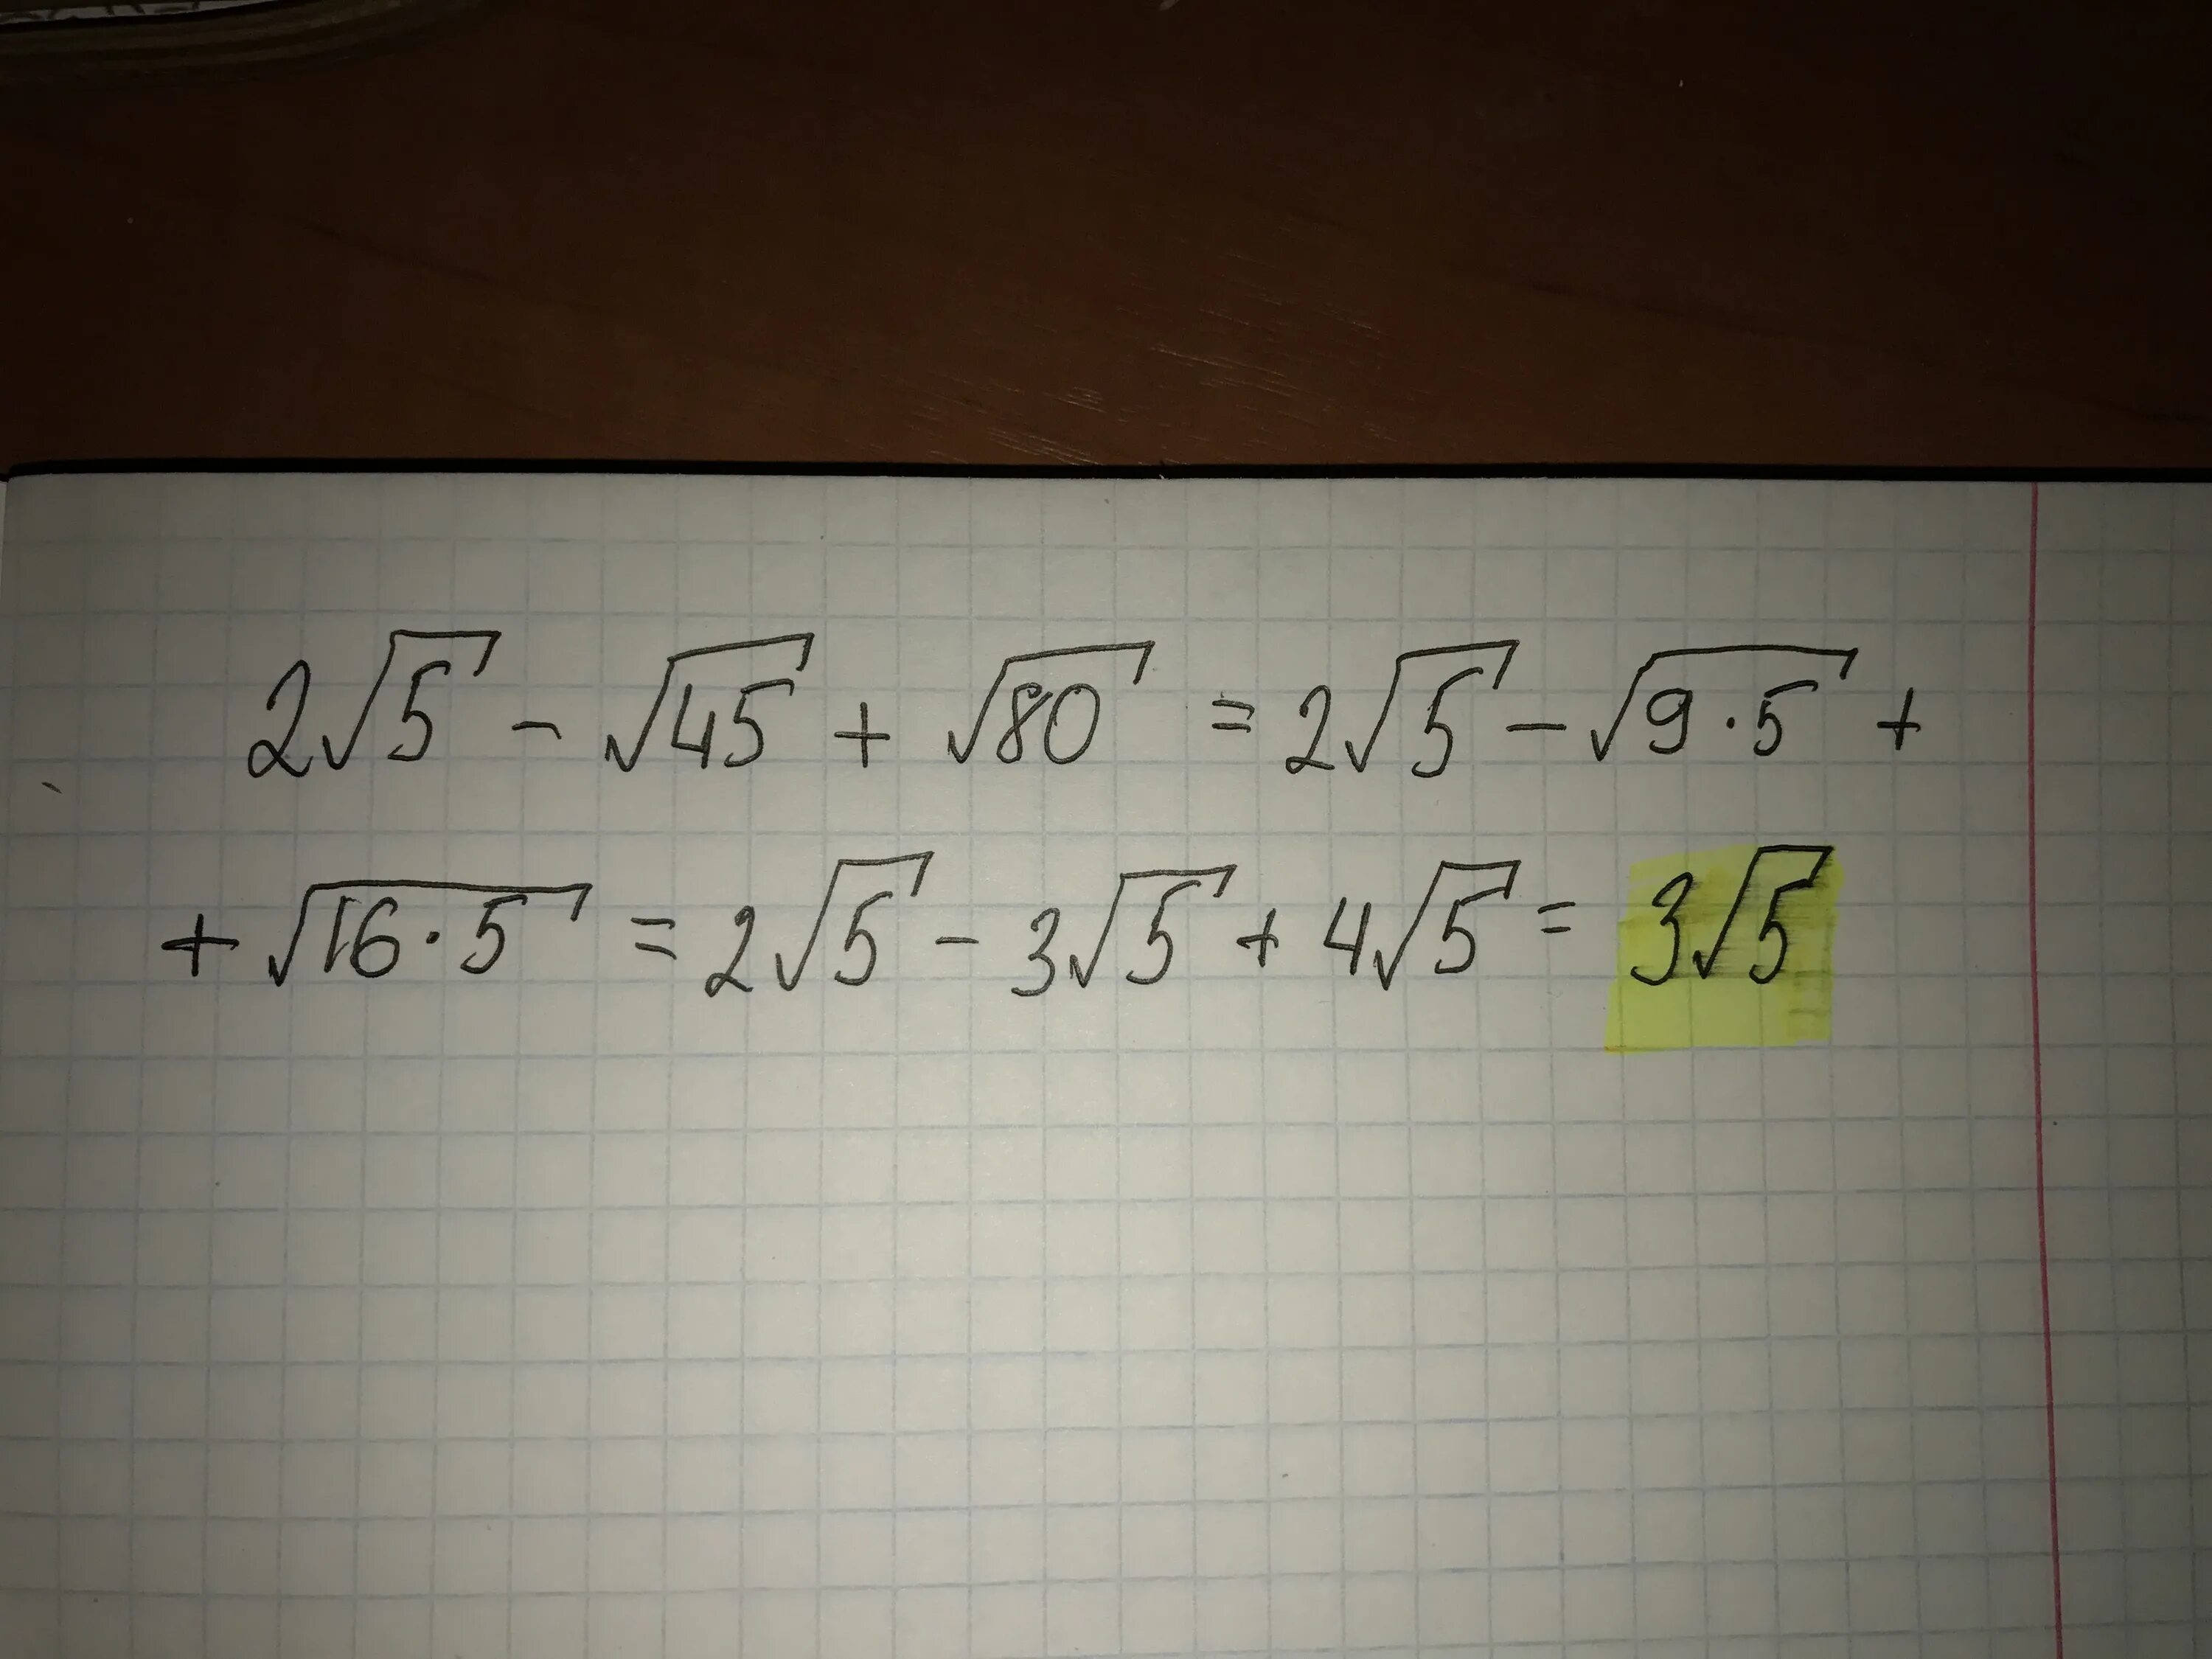 2√5 - √45 + √80 = 2√5 - √9·5 +
+ √16·5 = 2√5 - 3√5 + 4√5 = 3√5